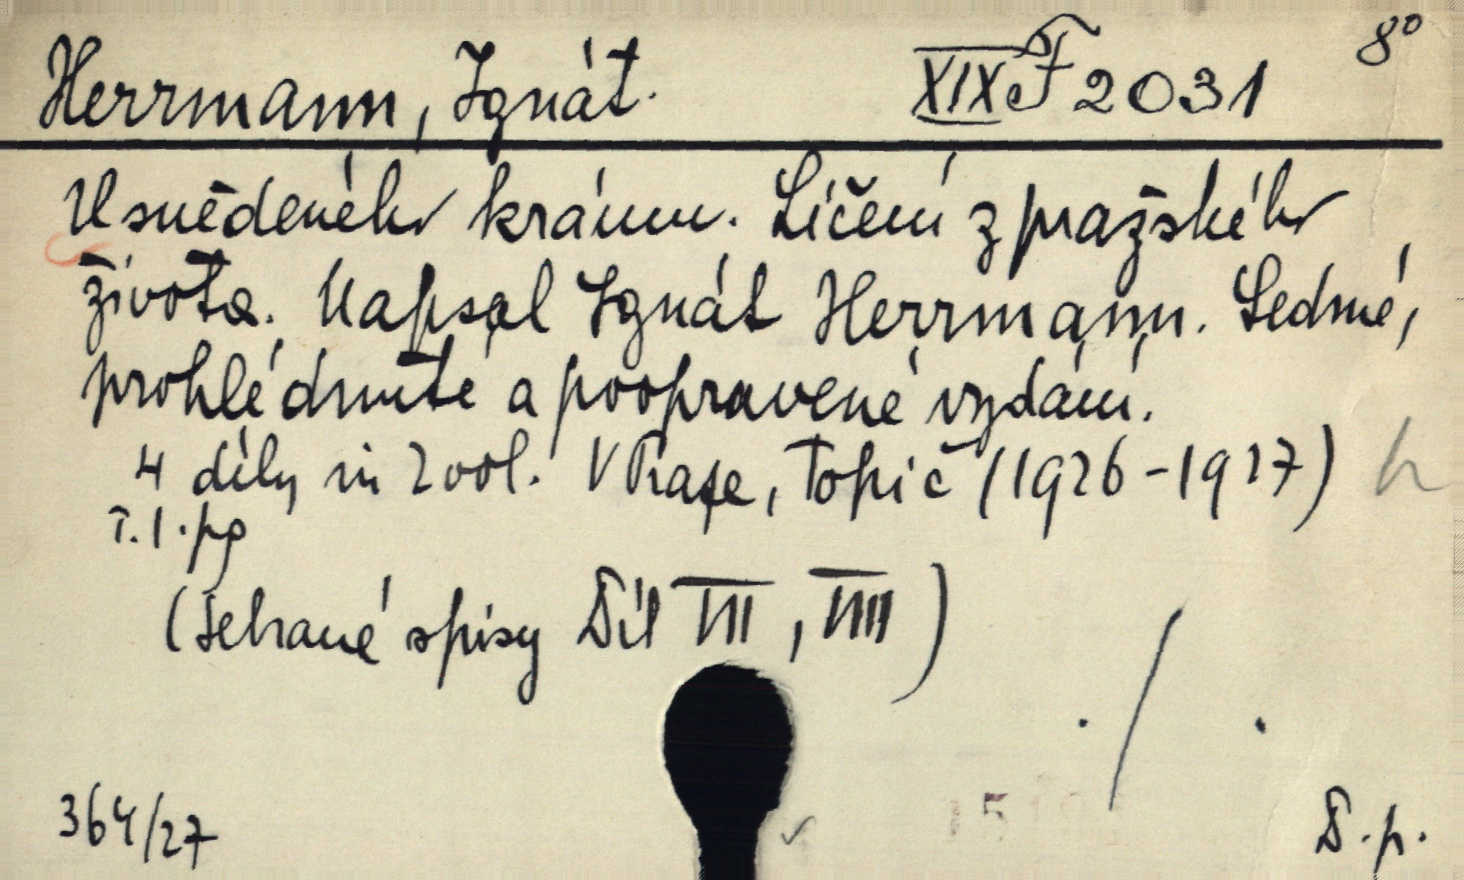 Herrmann, Ignát. XIX F 2031 8°
U snědeného krámu. Líčení z pražského
života. Napsal Ignát Herrmann. Sedmé,
prohlédnuté a poopravené vydání.
4 díly in 2 vol. V Praze, Topič (1926-1927)
T. 1. pg
(Sebrané spisy Díl VII, VIII)
364/27 D. p.